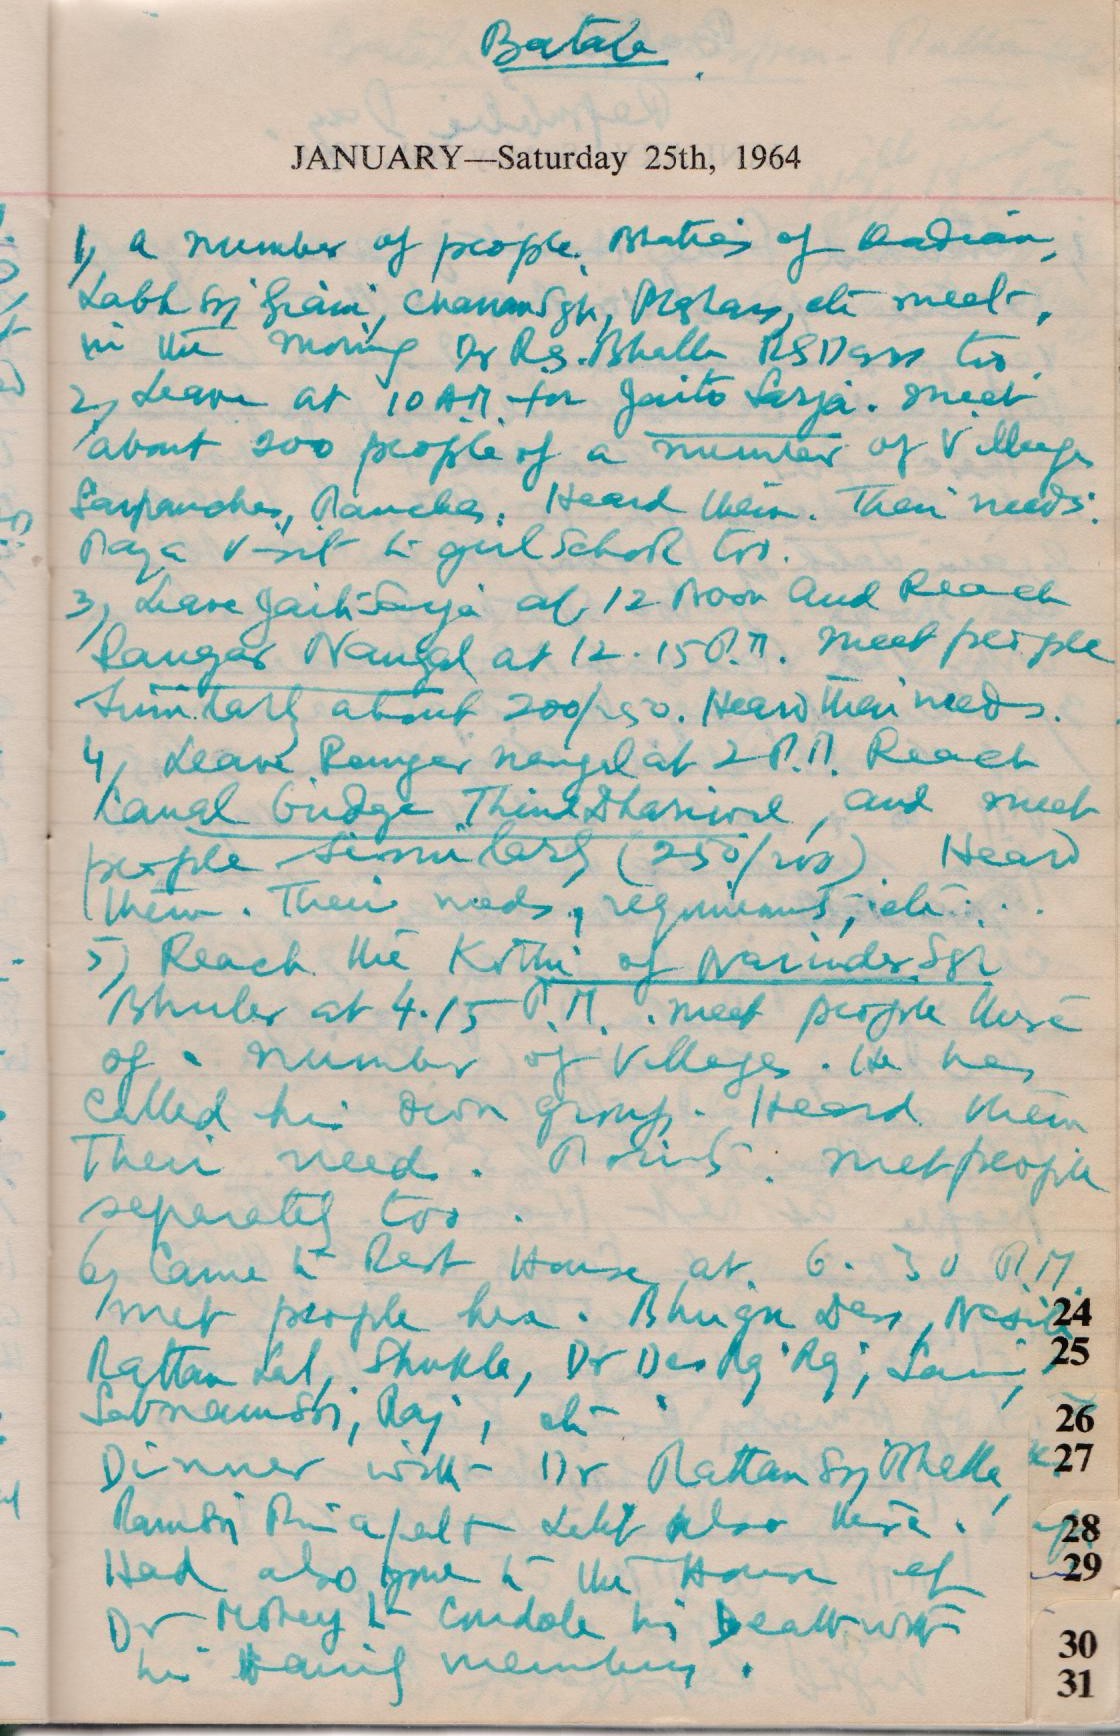 Batala
JANUARY—Saturday 25th, 1964
1, A number of people. Bhatias of Qadian,
Labh Sgh Giani, Chanan Sgh, etc meet,
in the morning Dr R.S. Bhalla too.
2, Leave at 10 AM for Jaito Sarja. Meet
about 200 people of a number of Village
Sarpanches, Panches. Heard them. Their needs.
Paya visit to girl School too.
3, Leave Jaito Sarja at 12 Noon and Reach
Rangar Nangal at 12.15 P.M. meet people
Similarly about 200/250. Heard their needs.
4, Leave Rangar nangal at 2 P.M. Reach
Canal bridge Thind Dhariwal, and meet
people similarly (250/200) Heard
them. Their needs, requirements, etc...
5) Reach the Kothi of Narinder Sgh
Bhuler at 4.15 P.M. . meet people there
of a number of Villages. He has
called his own group. Heard them
Their need. . met people
separately too.
6, Came to Rest House at 6.30 P.M.
Met people here. Dass,
Rattan Lal, Shukla, Dr Des Raj, Saini,
Raj, etc
Dinner with Dr Rattan Sgh Bhalla,
also there.
Had also gone to the House of
Dr to Condole his Death with
his Family members.
24
25
26
27
28
29
30
31